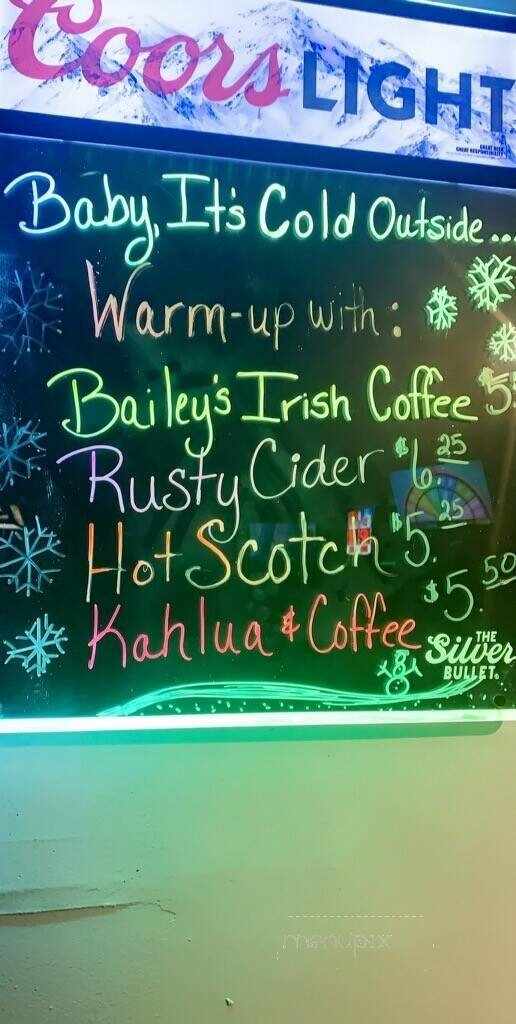 Coors LIGHT
GREAT BEER
GREAT RESPONSIBILITY
Baby, It's Cold Outside...
Warm-up with:
Bailey's Irish Coffee
Rusty Cider $6.25
Hot Scotch $5.25
Kahlua & Coffee $5.50
THE
Silver
BULLET®
menupix